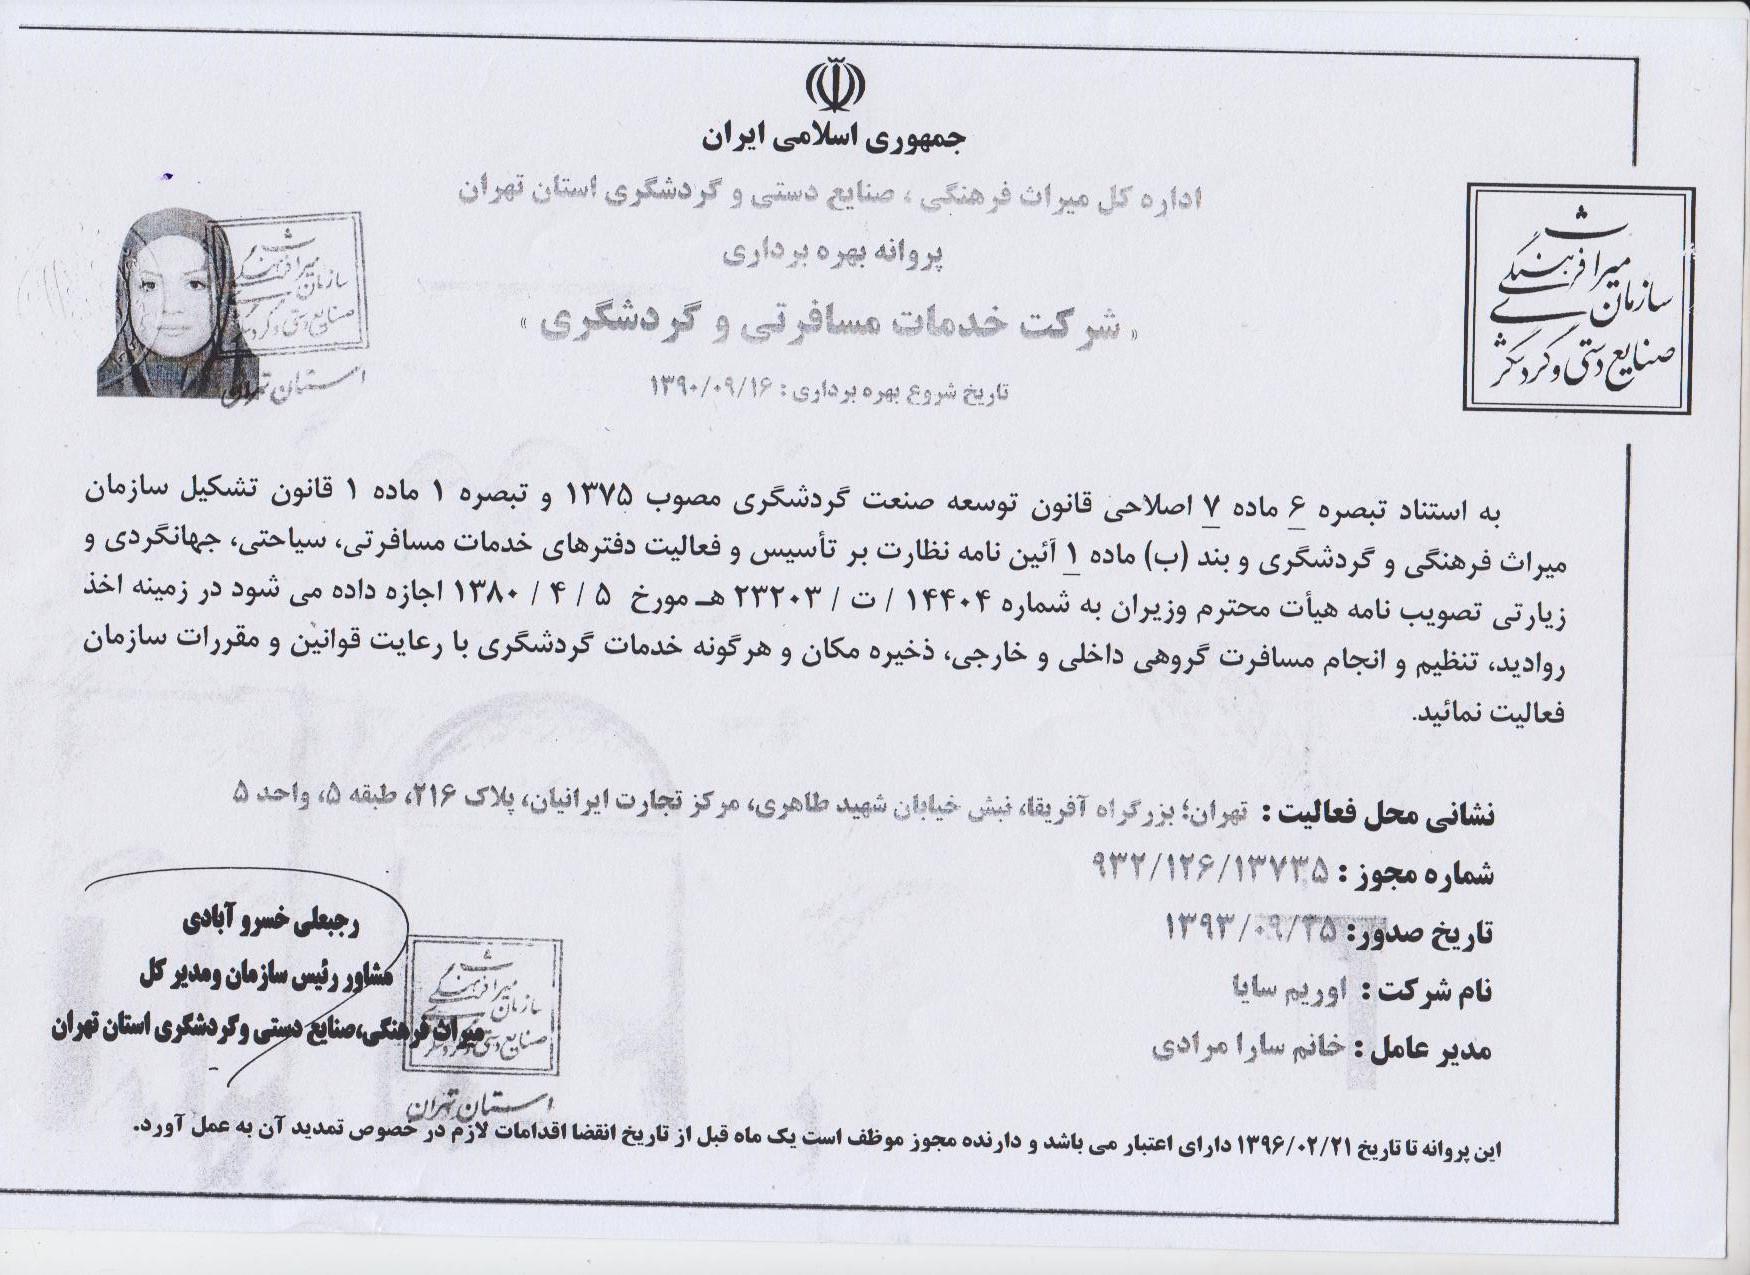 جمهوری اسلامی ایران
اداره کل میراث فرهنگی ، صنایع دستی و گردشگری استان تهران
پروانه بهره برداری
« شرکت خدمات مسافرتی و گردشگری »
تاریخ شروع بهره برداری : ۱۳۹۰/۰۹/۱۶
سازمان میراث فرهنگی
صنایع دستی و گردشگری
سازمان میراث فرهنگی
صنایع دستی و گردشگری
استان تهران
به استناد تبصره ۶ ماده ۷ اصلاحی قانون توسعه صنعت گردشگری مصوب ۱۳۷۵ و تبصره ۱ ماده ۱ قانون تشکیل سازمان
میراث فرهنگی و گردشگری و بند (ب) ماده ۱ آئین نامه نظارت بر تأسیس و فعالیت دفترهای خدمات مسافرتی، سیاحتی، جهانگردی و
زیارتی تصویب نامه هیأت محترم وزیران به شماره ۱۴۴۰۴ / ت / ۲۳۲۰۳ هـ مورخ ۵ / ۴ / ۱۳۸۰ اجازه داده می شود در زمینه اخذ
روادید، تنظیم و انجام مسافرت گروهی داخلی و خارجی، ذخیره مکان و هرگونه خدمات گردشگری با رعایت قوانین و مقررات سازمان
فعالیت نمائید.
نشانی محل فعالیت : تهران؛ بزرگراه آفریقا، نبش خیابان شهید طاهری، مرکز تجارت ایرانیان، پلاک ۲۱۶، طبقه ۵، واحد ۵
شماره مجوز : ۹۳۲/۱۲۶/۱۳۷۳۵
تاریخ صدور: ۱۳۹۳/۰۹/۲۵
نام شرکت : اوریم سایا
مدیر عامل : خانم سارا مرادی
رجبعلی خسرو آبادی
مشاور رئیس سازمان ومدیر کل
میراث فرهنگی،صنایع دستی وگردشگری استان تهران
سازمان میراث فرهنگی
صنایع دستی و گردشگری
استان تهران
این پروانه تا تاریخ ۱۳۹۶/۰۲/۲۱ دارای اعتبار می باشد و دارنده مجوز موظف است یک ماه قبل از تاریخ انقضا اقدامات لازم در خصوص تمدید آن به عمل آورد.